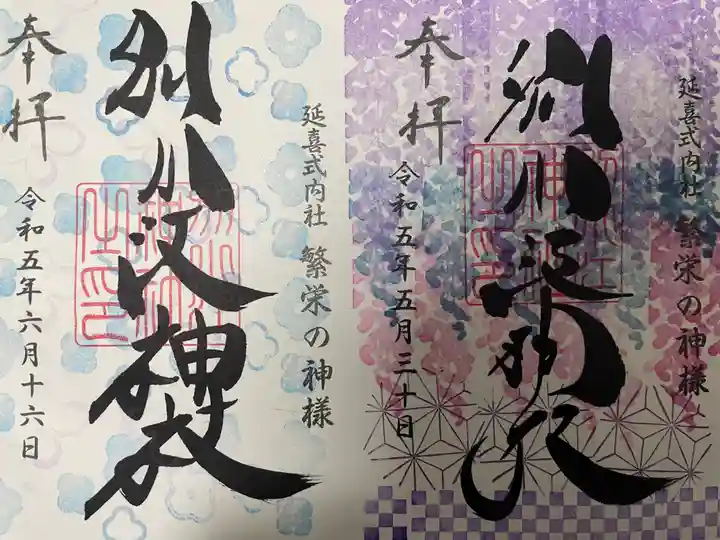 延喜式内社 繁栄の神様
別小江神社
奉拝
令和五年五月三十日
延喜式内社 繁栄の神様
別小江神社
奉拝
令和五年六月十六日